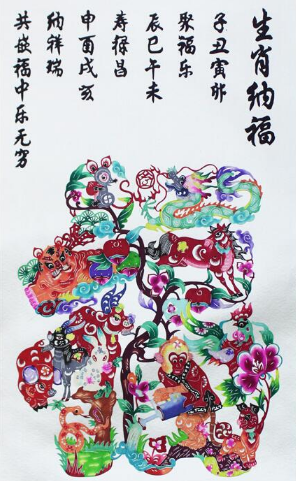 生肖纳福
子丑寅卯
聚福乐
辰巳午未
寿禄昌
申酉戌亥
纳祥瑞
共嵌福中乐无穷